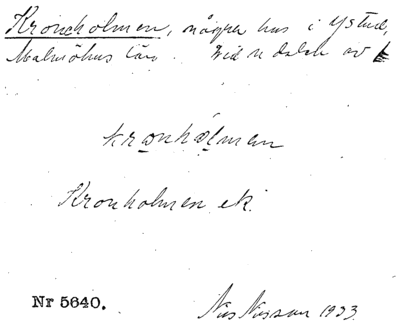 Kroneholmen, några hus i Ystad,
Malmöhus län. Vid N delen av
kronhólmen
Kronholmen ek.
Nr 5640. Nils Nilsson 1933.